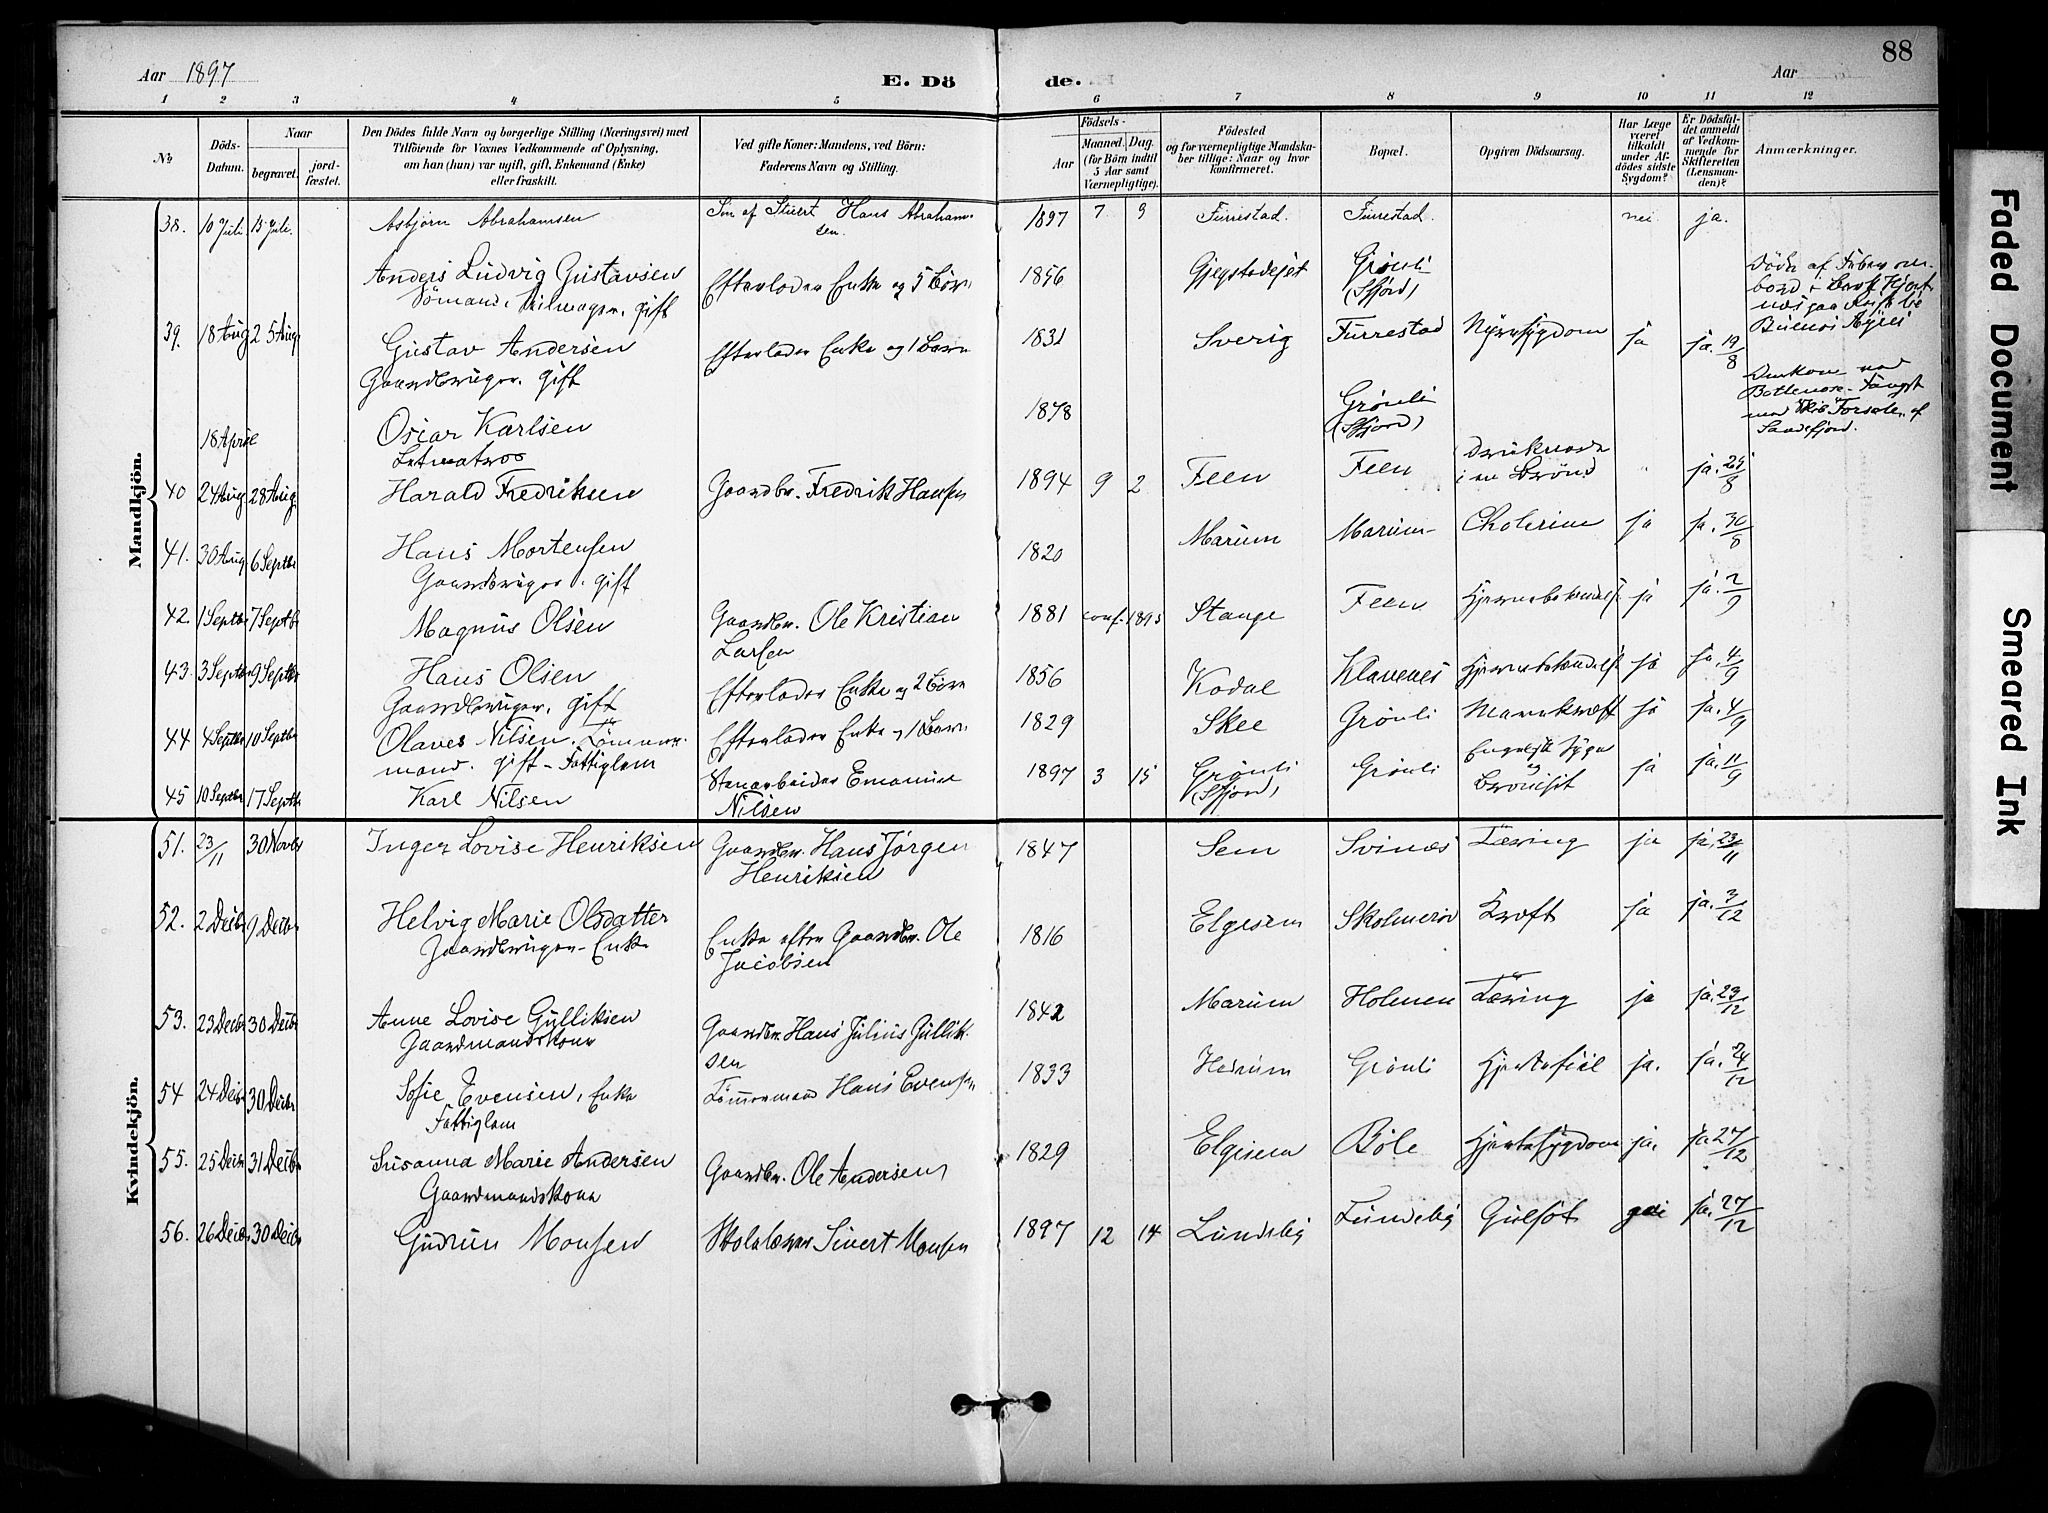 88
Aar 1897
E. Dö
de.
Aar
1 2 3 4 5 6 7 8 9 10 11 12
No
Döds-Datum.
Naar
begravet.
jord-fæstet.
Den Dödes fulde Navn og borgerlige Stilling (Næringsvei) med
Tilföiende for Voxnes Vedkommende af Oplysning,
om han (hun) var ugift, gift, Enkemand (Enke)
eller fraskilt.
Ved gifte Koner: Mandens, ved Börn:
Faderens Navn og Stilling.
Födsels-
Aar
Maaned. Dag.
(for Börn indtil
5 Aar samt
Værnepligtige).
Födested
og for værnepligtige Mandska-
ber tillige: Naar og hvor
konfirmeret.
Bopæl.
Opgiven Dödsaarsag.
Har Læge
været
tilkaldt
under Af-
dödes sidste
Sygdom?
Er Dödsfal-
det anmeldt
af Vedkom-
mende for
Skifteretten
(Lensman-
den)?
Anmærkninger.
Mandkjön.
38. 10 Juli 15 Juli. Asbjørn Abrahamsen Søn af Stuert Hans Abraham- 1897 7 9 Furrestad. Furrestad. nei ja.
sen.
Anders Ludvig Gustavsen Efterlader Enke og 5 Børn 1856 Grønli
Sømand, gift (Sfjord)
39. 18 Aug 25 Aug Gustav Andersen Efterlader Enke og 1 Barn 1831 Sverig Furrestad Nyresygdom ja ja. 19/8
Buenos Ayres
Gaardbruger. gift
18 April Oscar Karlsen 1878 Grønli
(Sfjord)
Letmatros
Sandefjord.
40 24 Aug 28 Aug Harald Fredriksen Gaardbr. Fredrik Hansen 1894 9 2 Feen Feen druknede
i en Brønd " ja.
41. 30 Aug 6 Septbr Hans Mortensen 1820 Marum Marum Cholerine ja ja. 30/8
Gaardbruger. gift
42. 1 Septbr 7 Septbr Magnus Olsen Gaardbr. Ole Kristian 1881 conf. 1895 Stange Feen ja ja.
Larsen
43. 3 Septbr 9 Septbr Hans Olsen Efterlader Enke og 2 Børn 1856 Kodal Klavenes ja ja. 4/9
Gaardbruger. gift
44 4 Septbr 10 Septbr Olaves Nilsen. Tømmer- Efterlader Enke og 1 Barn 1829 Skee Grønli Marvkræft ja ja. 4/9
mand. gift - Fattiglem
45 10 Septbr 17 Septbr Karl Nilsen Stenarbeider 1897 3 15 Grønli Grønli Engelsk Syge ja ja. 11/9
Nilsen (Sfjord) og
Bronchit
Kvindekjön.
51. 23/11 30 Novbr Inger Lovise Henriksen Gaardbr. Hans Jørgen 1847 Sem Svinæs Tæring ja ja. 23/11
Henriksen
52. 2 Decbr 9 Decbr Helvig Marie Olsdatter Enke efter Gaardbr. Ole 1816 Elgesem Kræft ja ja. 3/12
Gaardbruger-Enke Jacobsen
53. 23 Decbr 30 Decbr Anne Lovise Gulliksen Gaardbr. Hans Julius Gullik- 1842 Marum Holmen Tæring ja ja. 23/12
Gaardmandskone sen
54 24 Decbr 30 Decbr Sofie Evensen, Enke Tømmermand Hans Evensen 1833 Hedrum Grønli Hjertefeil ja. ja. 24/12
Fattiglem
55. 25 Decbr 31 Decbr Susanna Marie Andersen Gaardbr. Ole Andersen 1829 Elgesem Bøle Hjertesygdom ja. ja 27/12
Gaardmandskone
56. 26 Decbr 30 Decbr Gudrun Monsen Skolelærer Sivert Monsen 1897 12 14 Lundeby Lundeby Gulsot ja. 27/12
Faded Document
Smeared Ink